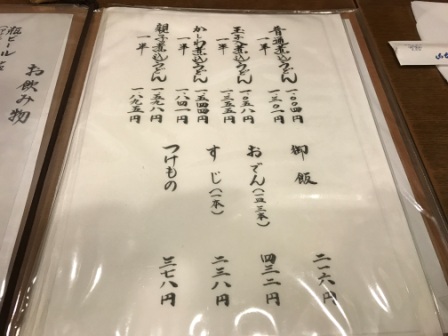 普通煮込うどん 一〇〇四円
一半 一三〇一円
玉子煮込うどん 一〇五八円
一半 一三五五円
かしわ煮込うどん 一五四四円
一半 一八四一円
親子煮込うどん 一五九八円
一半 一八九五円
御飯 二一六円
おでん(一皿三本) 四三二円
すじ(一本) 二三八円
つけもの 三七八円
お飲み物
瓶ビール